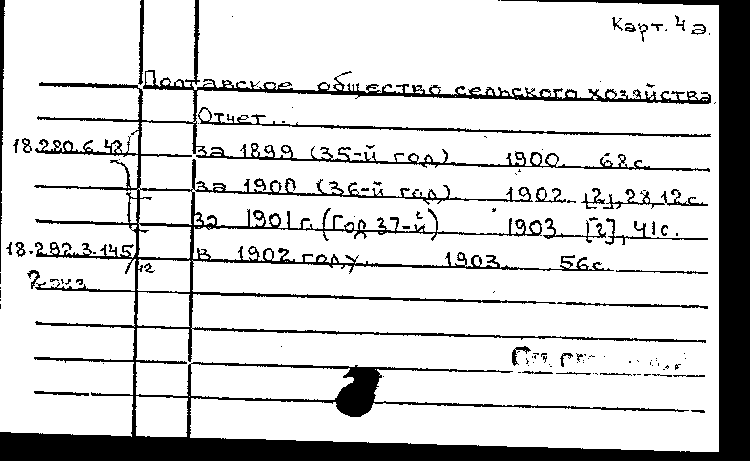 Карт. 4а.
Полтавское общество сельского хозяйства
Отчет...
18.280.6.48/ за 1899 (35-й год) 1900. 68с.
за 1900 (36-й год) 1902. [2], 28, 12с.
за 1901 г. (Год 37-й) 1903. [2], 41с.
18.292.3.145/12 в 1902 году. 1903. 56с.
2 экз